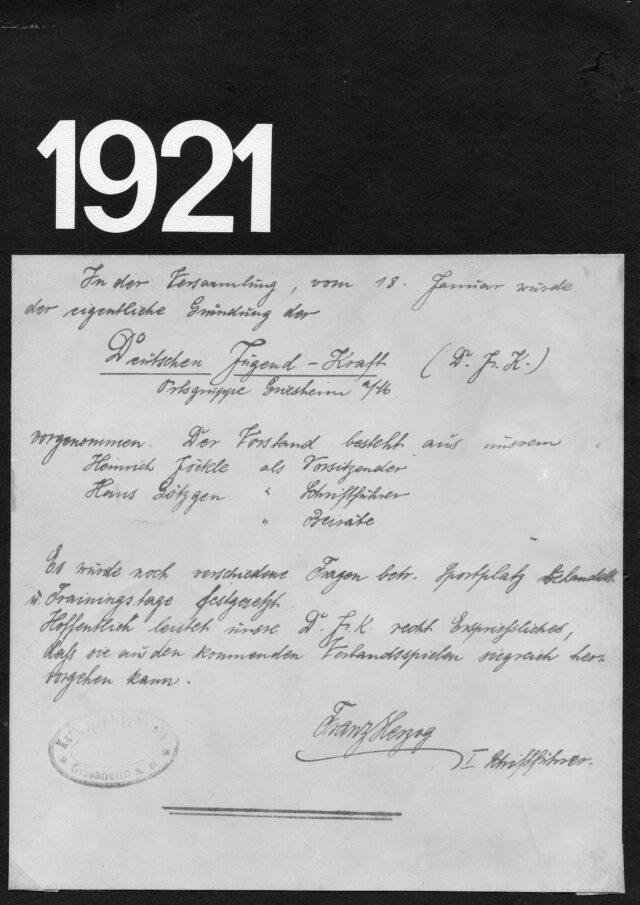 1921
In der Versammlung, vom 18. Januar wurde
der eigentliche Gründung der
Deutschen Jugend-Kraft (D. J. K.)
Ortsgruppe Griesheim a/M
vorgenommen. Der Vorstand besteht aus unsrem
Heinrich Jöckle als Vorsitzender
Hans Götzgen " Schriftführer
" Beiräte
Es wurde noch verschiedene Fragen betr. Sportplatz behandelt
u. Trainingstage festgesetzt.
Hoffentlich leistet unsre D. J. K. recht Erspriessliches,
daß sie aus den kommenden Verbandsspielen siegreich her-
vorgehen kann.
Franz Herzog
I Schriftführer.
Griesheim a. M.